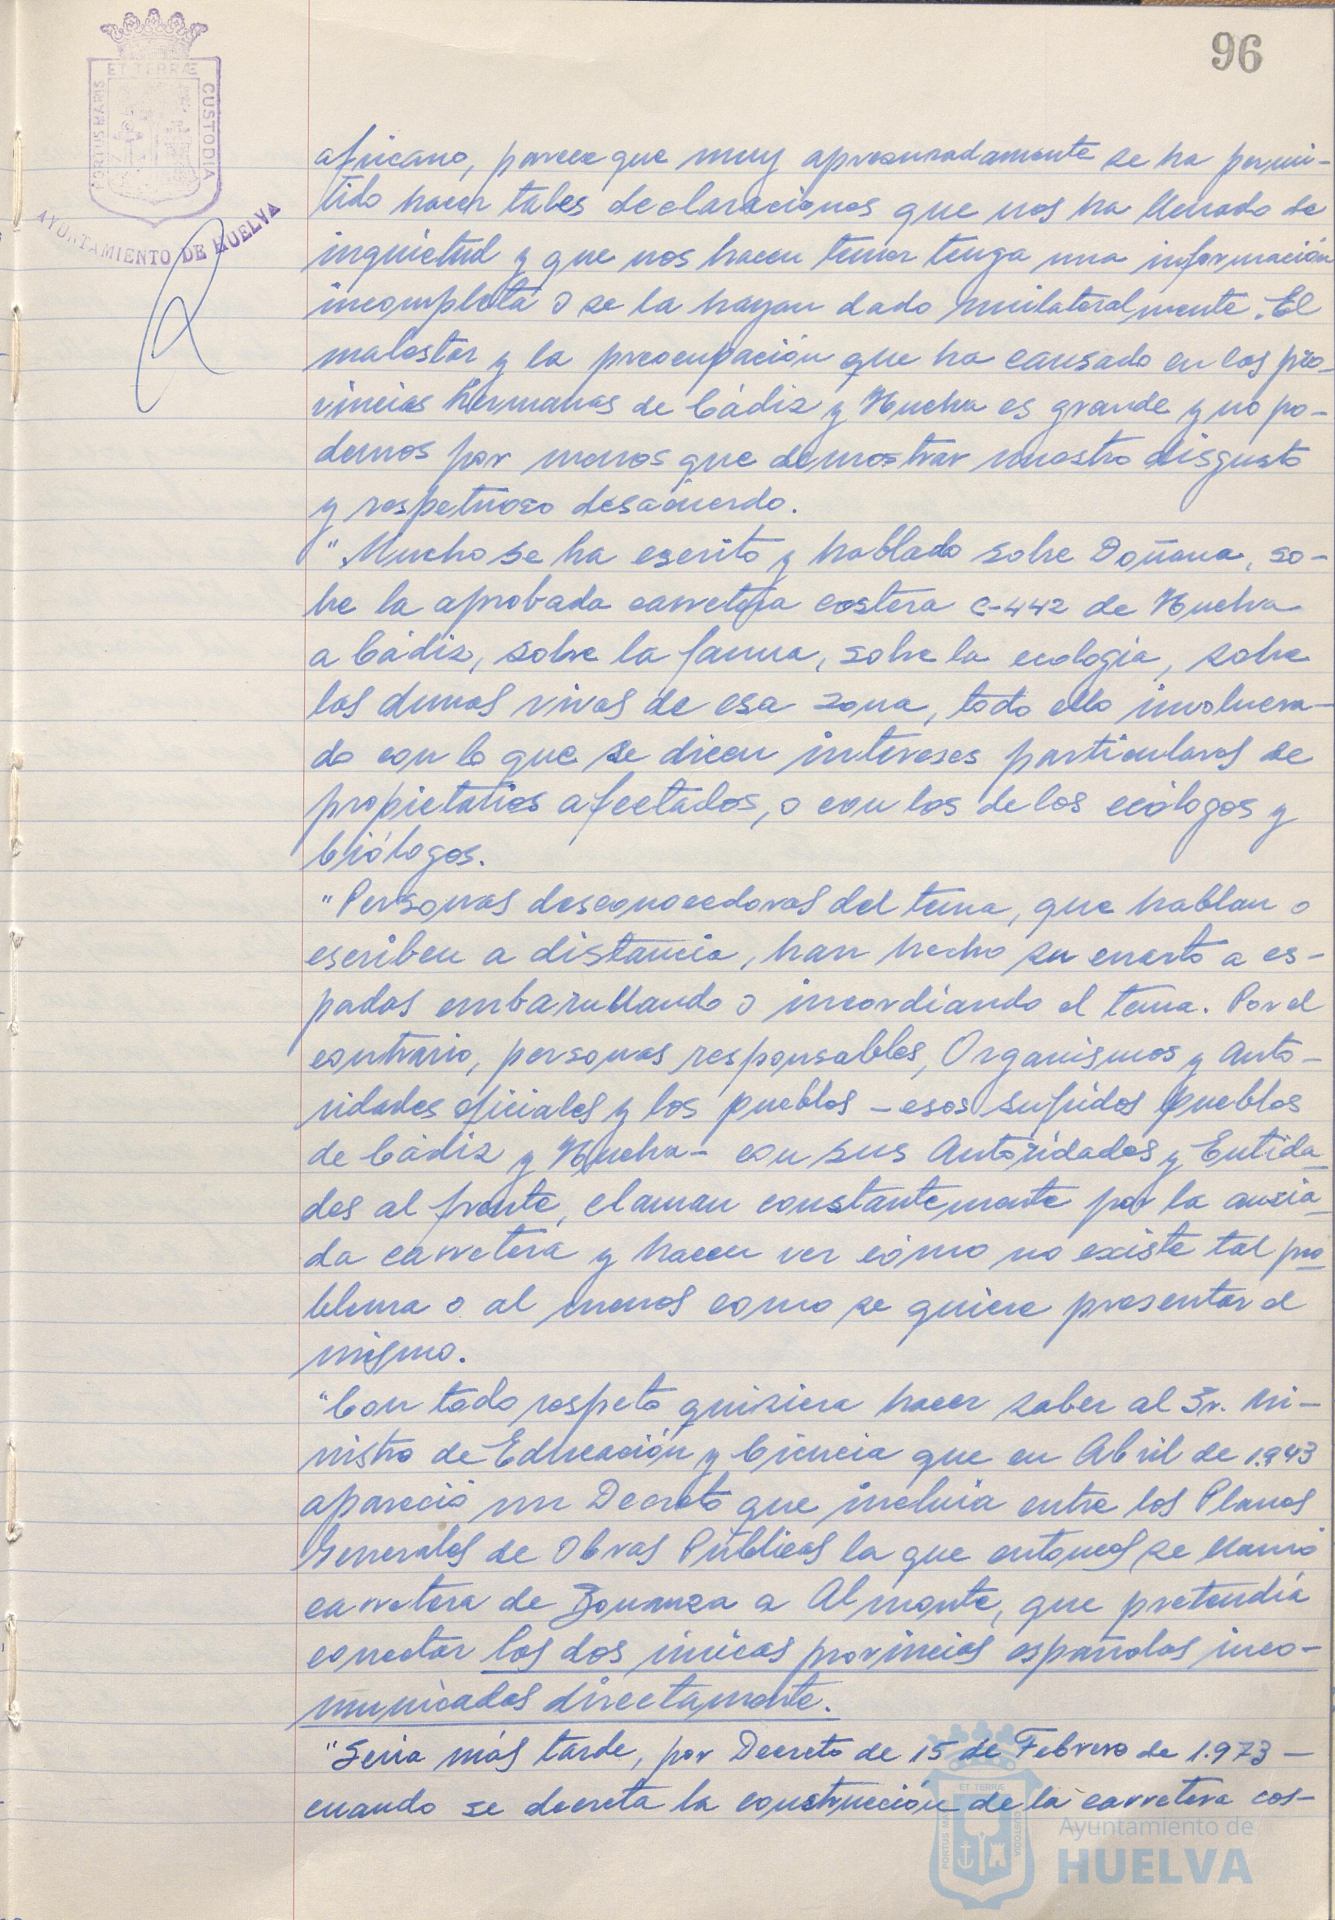 96
ET TERRÆ
PORTUS MARIS
CUSTODIA
AYUNTAMIENTO DE HUELVA
africano, parece que muy apresuradamente se ha permi-
tido hacer tales declaraciones que nos ha llenado de
inquietud y que nos hacen temer tenga una información
incompleta o se la hayan dado unilateralmente. El
malestar y la preocupación que ha causado en las pro-
vincias hermanas de Cádiz y Huelva es grande y no po-
demos por menos que demostrar nuestro disgusto
y respetuoso desacuerdo.
"Mucho se ha escrito y hablado sobre Doñana, so-
bre la aprobada carretera costera C-442 de Huelva
a Cádiz, sobre la fauna, sobre la ecología, sobre
las dunas vivas de esa zona, todo ello involucra-
do con lo que se dicen intereses particulares de
propietarios afectados, o con los de los ecólogos y
biólogos.
"Personas desconocedoras del tema, que hablan o
escriben a distancia, han hecho su cuarto a es-
padas embarullando o incordiando el tema. Por el
contrario, personas responsables, Organismos y Auto-
ridades oficiales y los pueblos - esos sufridos pueblos
de Cádiz y Huelva - con sus Autoridades y Entida-
des al frente, claman constantemente por la ansia-
da carretera y hacen ver cómo no existe tal pro-
blema o al menos como se quiere presentar el
mismo.
"Con todo respeto quisiera hacer saber al Sr. Mi-
nistro de Educación y Ciencia que en Abril de 1.943
apareció un Decreto que incluía entre los Planes
Generales de Obras Públicas la que entonces se llamó
carretera de Bonanza a Almonte, que pretendía
conectar las dos únicas provincias españolas inco-
municadas directamente.
"Sería más tarde, por Decreto de 15 de Febrero de 1.973 -
cuando se decreta la construcción de la carretera cos-
ET TERRÆ
PORTUS MARIS
CUSTODIA
Ayuntamiento de
HUELVA